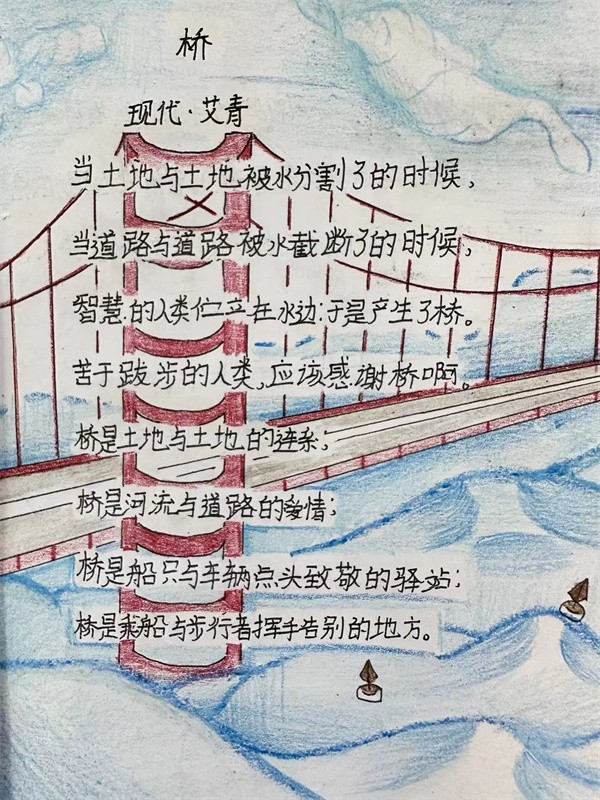 桥
现代·艾青
当土地与土地被水分割了的时候，
当道路与道路被水截断了的时候，
智慧的人类伫立在水边：于是产生了桥。
苦于跋涉的人类，应该感谢桥啊。
桥是土地与土地的连系；
桥是河流与道路的爱情；
桥是船只与车辆点头致敬的驿站；
桥是乘船与步行者挥手告别的地方。